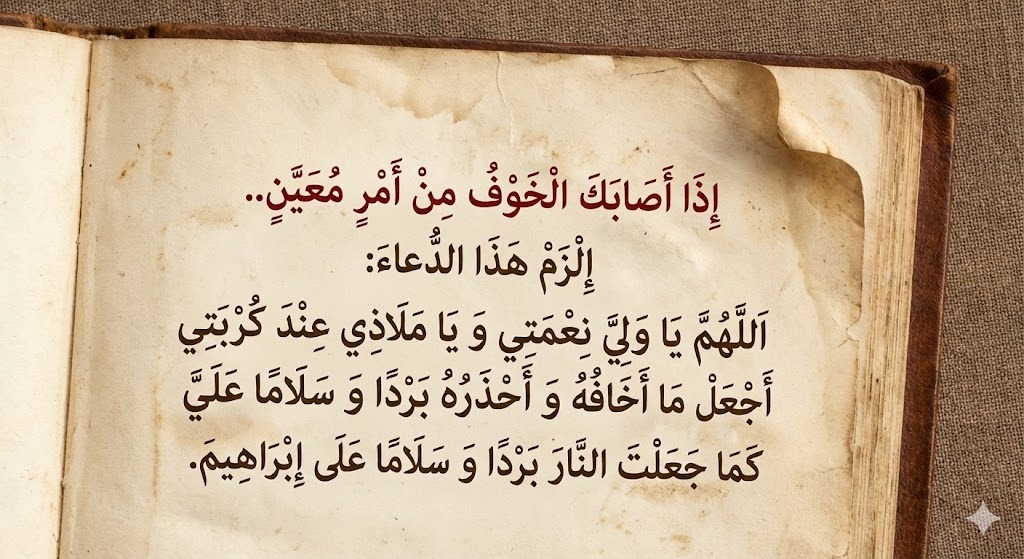 إِذَا أَصَابَكَ الْخَوْفُ مِنْ أَمْرٍ مُعَيَّنٍ..
إِلْزَمْ هَذَا الدُّعاءَ:
اَللَّهُمَّ يَا وَلِيَّ نِعْمَتِي وَ يَا مَلَاذِي عِنْدَ كُرْبَتِي
أَجْعَلْ مَا أَخَافُهُ وَ أَحْذَرُهُ بَرْدًا وَ سَلَامًا عَلَيَّ
كَمَا جَعَلْتَ النَّارَ بَرْدًا وَ سَلَامًا عَلَى إِبْرَاهِيمَ.